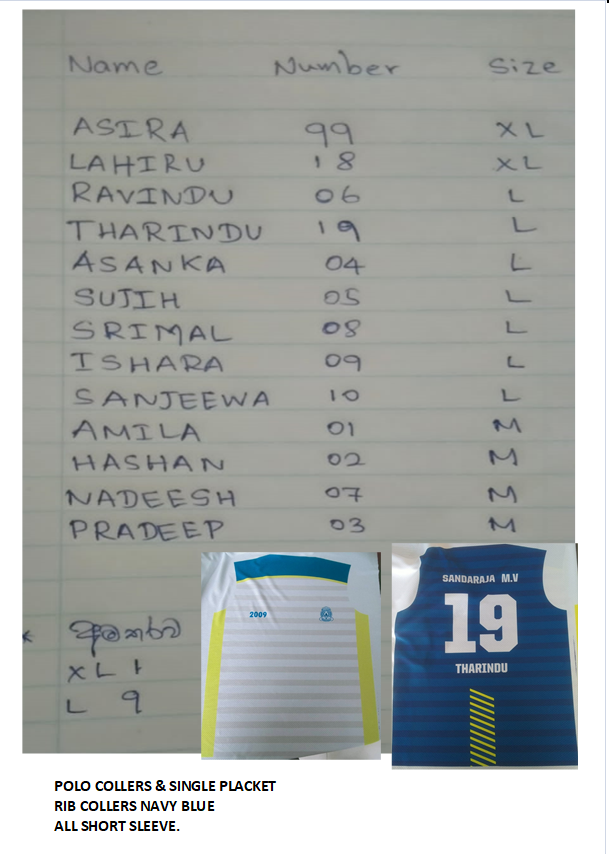 Name Number Size
ASIRA 99 XL
LAHIRU 18 XL
RAVINDU 06 L
THARINDU 19 L
ASANKA 04 L
SUJIH 05 L
SRIMAL 08 L
ISHARA 09 L
SANJEEWA 10 L
AMILA 01 M
HASHAN 02 M
NADEESH 07 M
PRADEEP 03 M
XL 1
L 9
2009
SANDARAJA M.V
19
THARINDU
POLO COLLERS & SINGLE PLACKET
RIB COLLERS NAVY BLUE
ALL SHORT SLEEVE.